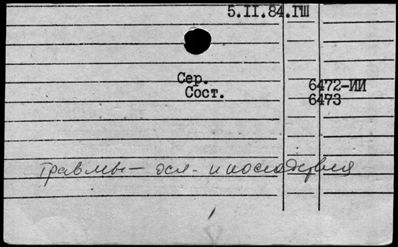 5.II.84.ГШ
Сер.
Сост.
6472-ИИ
6473
травмы – осл. и последствия